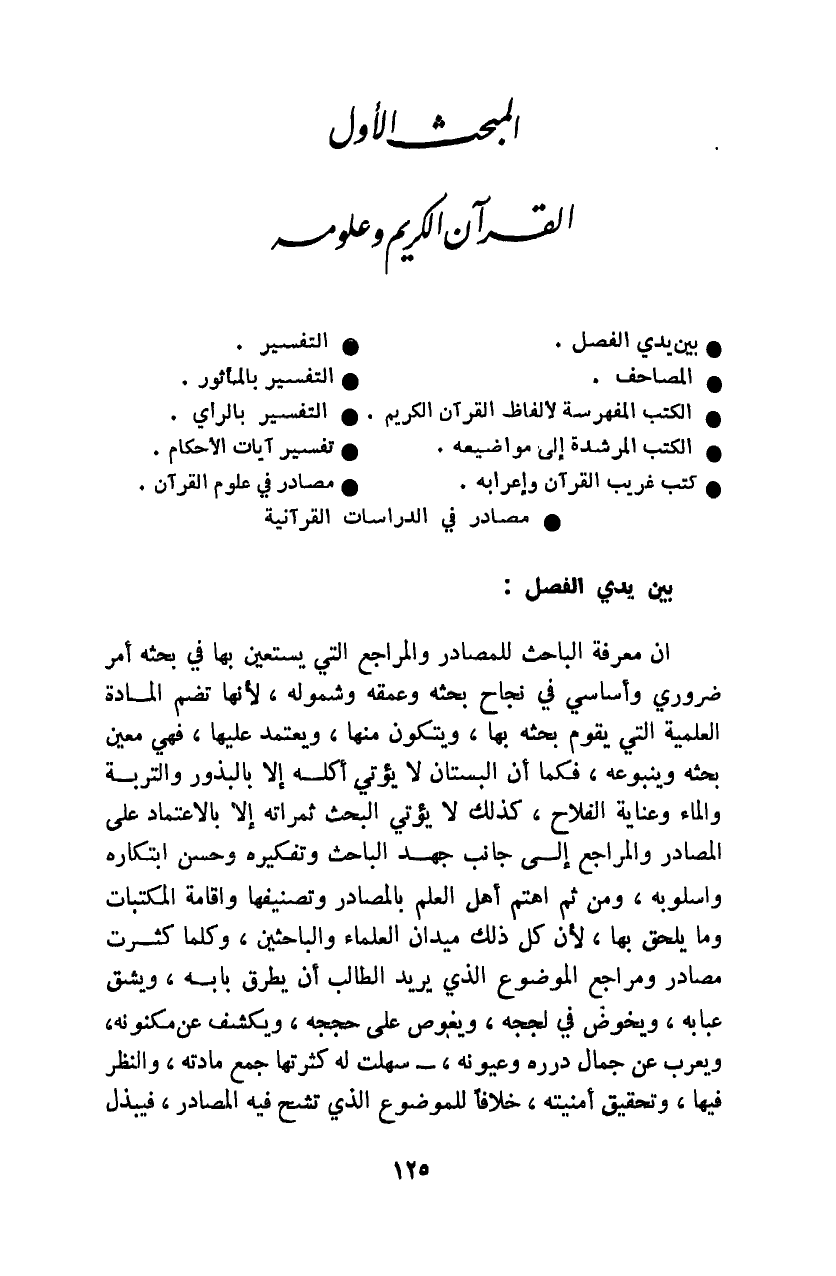 المبحث الأول
القرآن الكريم وعلومه
● بين يدي الفصل .
● المصاحف .
● الكتب المفهرسة لألفاظ القرآن الكريم .
● الكتب المرشدة إلى مواضيعه .
● كتب غريب القرآن وإعرابه .
● التفسير .
● التفسير بالمأثور .
● التفسير بالرأي .
● تفسير آيات الأحكام .
● مصادر في علوم القرآن .
● مصادر في الدراسات القرآنية
بين يدي الفصل :
ان معرفة الباحث للمصادر والمراجع التي يستعين بها في بحثه أمر
ضروري وأساسي في نجاح بحثه وعمقه وشموله ، لأنها تضم المـادة
العلمية التي يقوم بحثه بها ، ويتكون منها ، ويعتمد عليها ، فهي معين
بحثه وينبوعه ، فكما أن البستان لا يؤتي أكلـه إلا بالبذور والتربـة
والماء وعناية الفلاح ، كذلك لا يؤتي البحث ثمراته إلا بالاعتماد على
المصادر والمراجع إلـى جانب جهـد الباحث وتفكيره وحسن ابتكاره
واسلوبه ، ومن ثم اهتم أهل العلم بالمصادر وتصنيفها واقامة المكتبات
وما يلحق بها ، لأن كل ذلك ميدان العلماء والباحثين ، وكلما كثـرت
مصادر ومراجع الموضوع الذي يريد الطالب أن يطرق بابـه ، ويشق
عبابه ، ويخوض في لججه ، ويغوص على حججه ، ويكشف عن مكنونه،
ويعرب عن جمال درره وعيونه ، ــ سهلت له كثرتها جمع مادته ، والنظر
فيها ، وتحقيق أمنيته ، خلافاً للموضوع الذي تشح فيه المصادر ، فيبذل
١٢٥